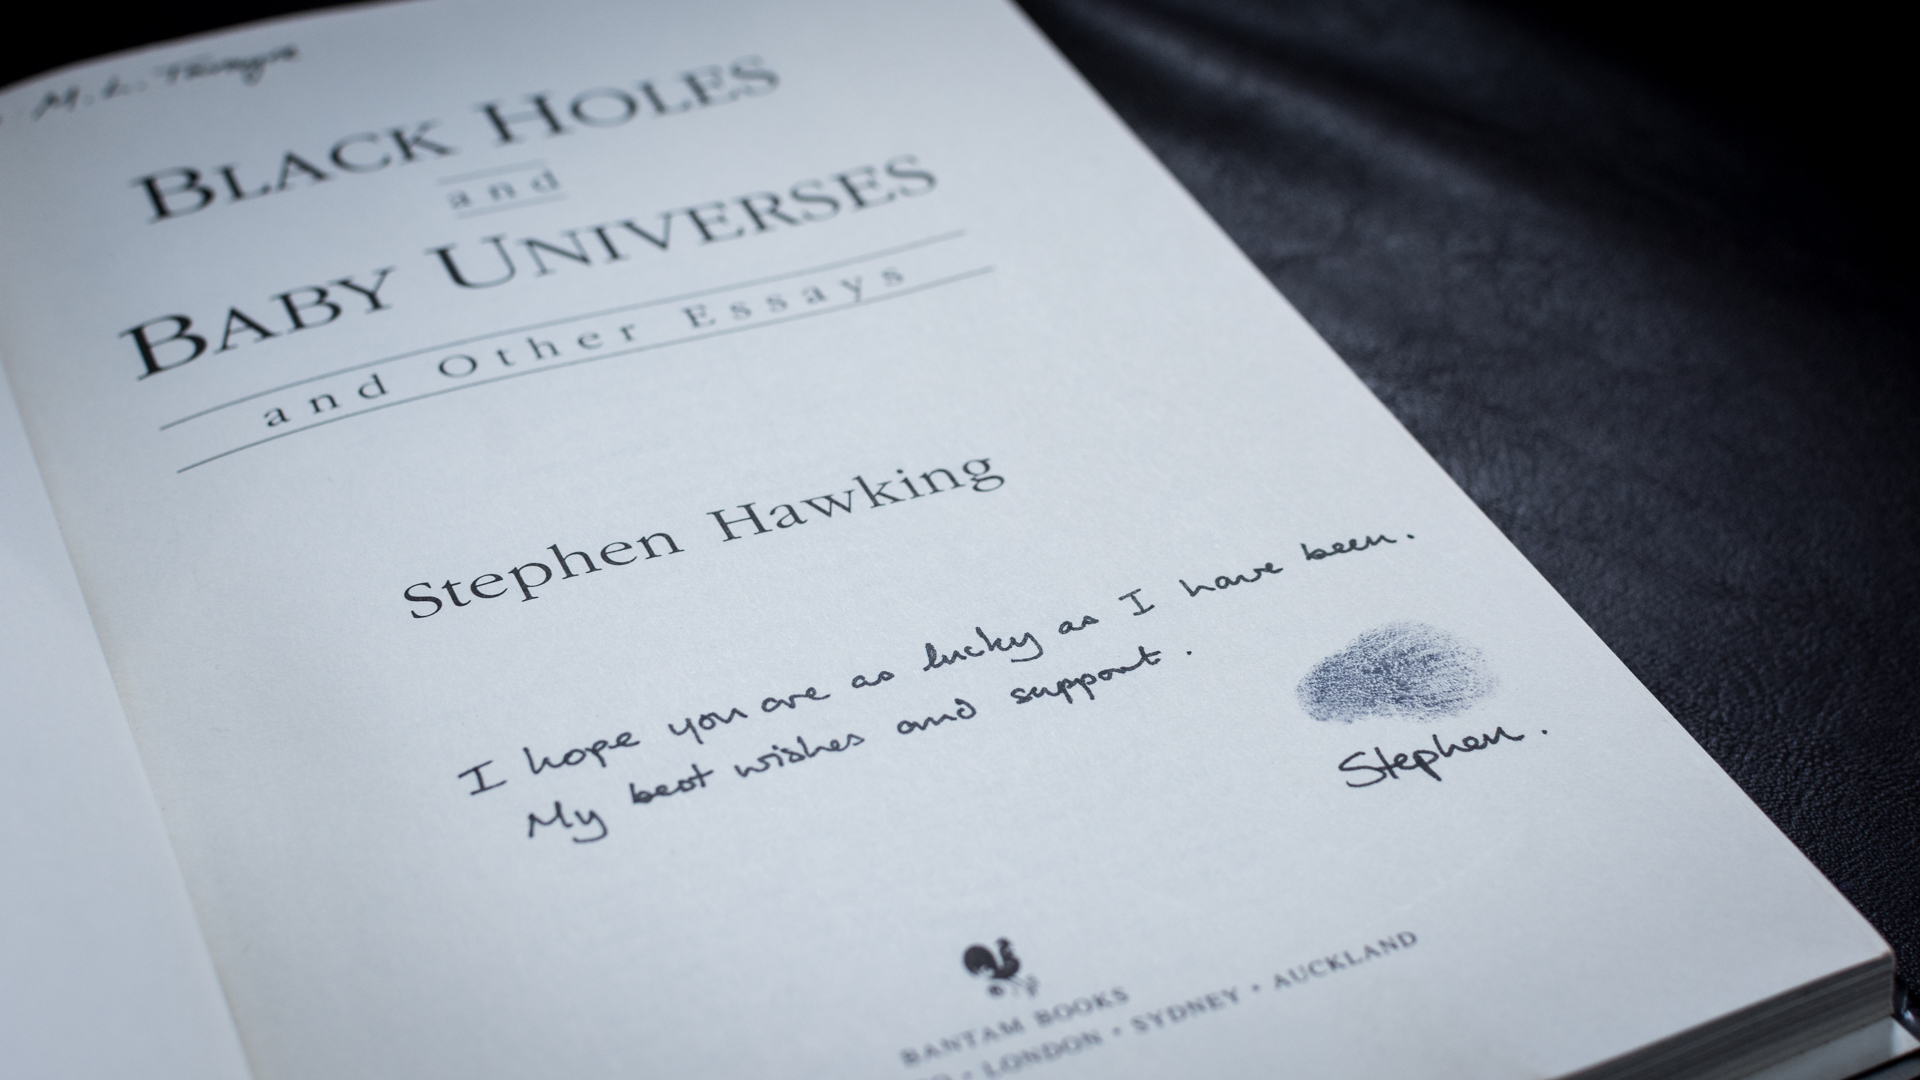 M. L.
BLACK HOLES
and
BABY UNIVERSES
and Other Essays
Stephen Hawking
I hope you are as lucky as I have been.
My best wishes and support.
Stephen.
BANTAM BOOKS
• LONDON • SYDNEY • AUCKLAND